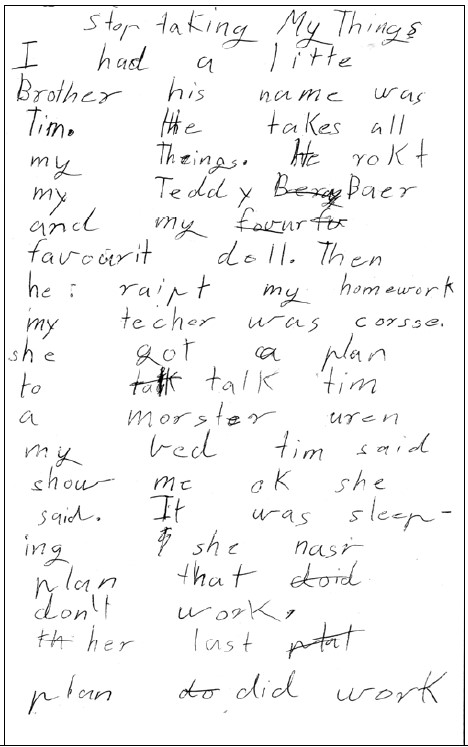 Stop taking My Things
I had a litte
Brother his name was
Tim. He takes all
my Theings. He rokt
my Teddy Baer
and my
favourit doll. Then
he raipt my homework
my techer was corsse.
she got a plan
to talk tim
a morster uren
my bed tim said
show me ok she
said. It was sleep-
ing she nasr
plan that
don't work,
her last
plan did work